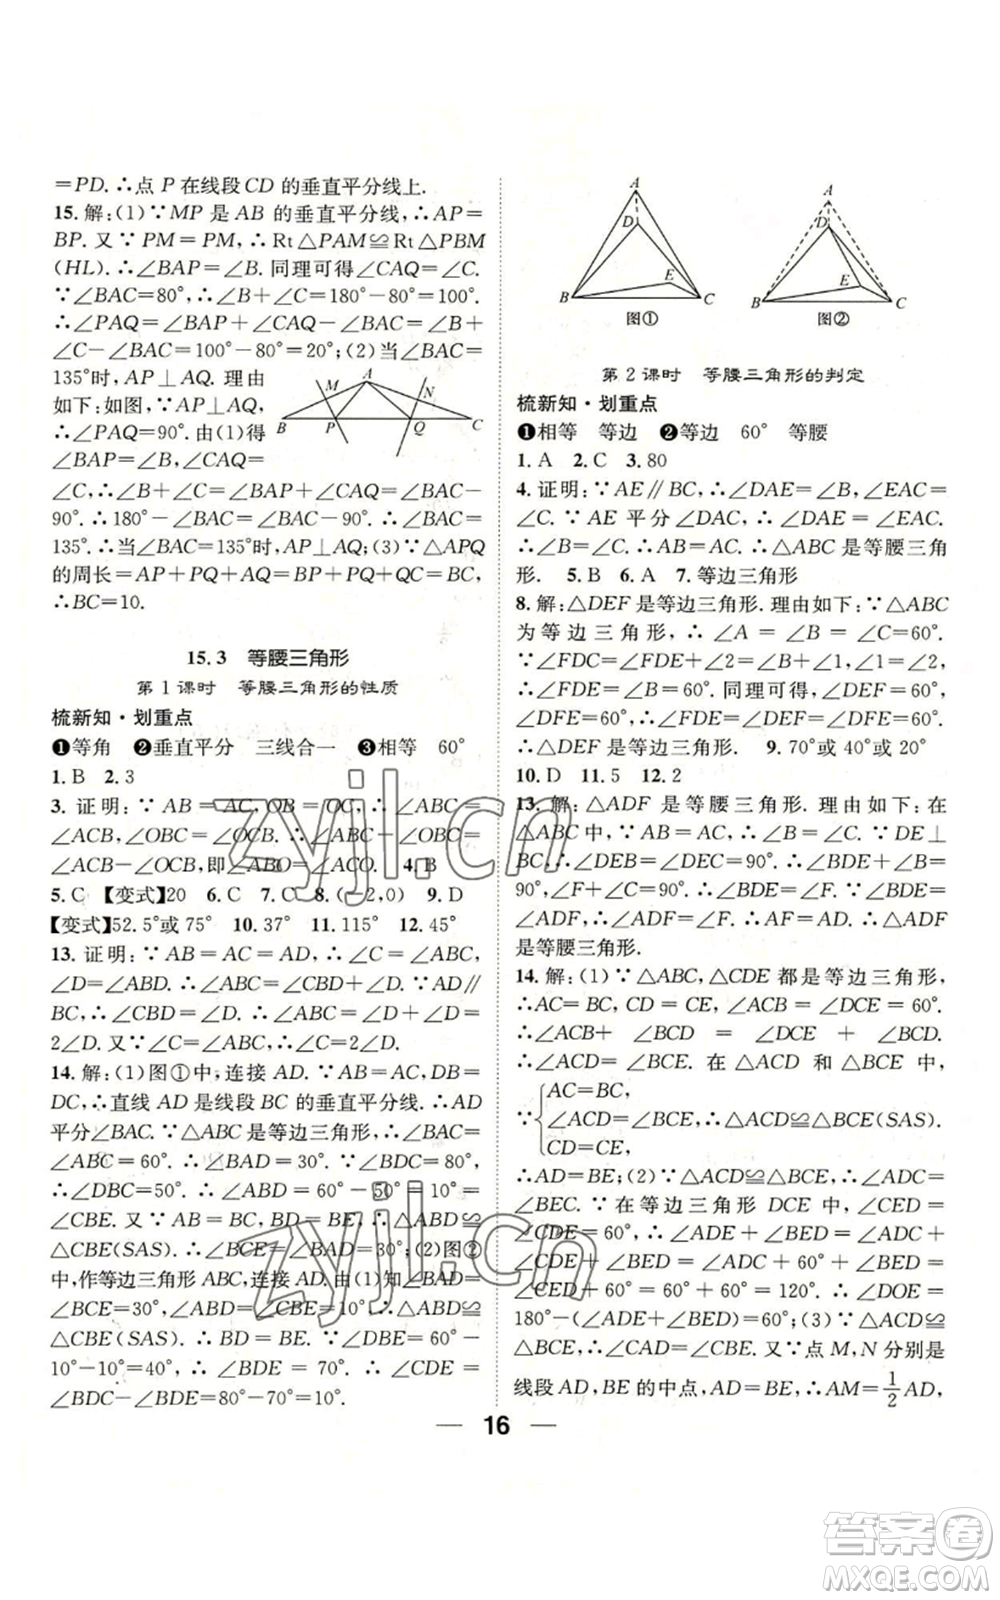 =PD. ∴点 P 在线段 CD 的垂直平分线上.
15. 解:(1)∵MP 是 AB 的垂直平分线,∴AP=
BP. 又∵PM=PM,∴Rt△PAM≌Rt△PBM
(HL). ∴∠BAP=∠B. 同理可得∠CAQ=∠C.
∵∠BAC=80°,∴∠B+∠C=180°-80°=100°.
∴∠PAQ=∠BAP+∠CAQ-∠BAC=∠B+
∠C-∠BAC=100°-80°=20°;(2)当∠BAC=
135°时,AP⊥AQ. 理由
如下:如图,∵AP⊥AQ,∴
∠PAQ=90°. 由(1)得
∠BAP=∠B,∠CAQ=
∠C,∴∠B+∠C=∠BAP+∠CAQ=∠BAC-
90°. ∴180°-∠BAC=∠BAC-90°. ∴∠BAC=
135°. ∴当∠BAC=135°时,AP⊥AQ;(3)∵△APQ
的周长=AP+PQ+AQ=BP+PQ+QC=BC,
∴BC=10.
M A N
B P Q C
15.3 等腰三角形
第 1 课时 等腰三角形的性质
梳新知·划重点
❶等角 ❷垂直平分 三线合一 ❸相等 60°
1. B 2. 3
3. 证明:∵AB=AC,OB=OC,∴∠ABC=
∠ACB,∠OBC=∠OCB. ∴∠ABC-∠OBC=
∠ACB-∠OCB,即∠ABO=∠ACO. 4. B
5. C 【变式】20 6. C 7. C 8. (-2,0) 9. D
【变式】52.5°或 75° 10. 37° 11. 115° 12. 45°
13. 证明:∵AB=AC=AD,∴∠C=∠ABC,
∠D=∠ABD. ∴∠ABC=∠CBD+∠D. ∵AD∥
BC,∴∠CBD=∠D. ∴∠ABC=∠D+∠D=
2∠D. 又∵∠C=∠ABC,∴∠C=2∠D.
14. 解:(1)图①中,连接 AD. ∵AB=AC,DB=
DC,∴直线 AD 是线段 BC 的垂直平分线. ∴AD
平分∠BAC. ∵△ABC 是等边三角形,∴∠BAC=
∠ABC=60°. ∴∠BAD=30°. ∵∠BDC=80°,
∴∠DBC=50°. ∴∠ABD=60°-50°=10°=
∠CBE. 又∵AB=BC,BD=BE,∴△ABD≌
△CBE(SAS). ∴∠BCE=∠BAD=30°;(2)图②
中,作等边三角形 ABC,连接 AD. 由(1)知∠BAD=
∠BCE=30°,∠ABD=∠CBE=10°,∴△ABD≌
△CBE(SAS). ∴BD=BE. ∵∠DBE=60°-
10°-10°=40°,∴∠BDE=70°. ∴∠CDE=
∠BDC-∠BDE=80°-70°=10°.
A D E B C
图①
A D E B C
图②
第 2 课时 等腰三角形的判定
梳新知·划重点
❶相等 等边 ❷等边 60° 等腰
1. A 2. C 3. 80
4. 证明:∵AE∥BC,∴∠DAE=∠B,∠EAC=
∠C. ∵AE 平分∠DAC,∴∠DAE=∠EAC.
∴∠B=∠C. ∴AB=AC. ∴△ABC 是等腰三角
形. 5. B 6. A 7. 等边三角形
8. 解:△DEF 是等边三角形. 理由如下:∵△ABC
为等边三角形,∴∠A=∠B=∠C=60°.
∵∠FDC=∠FDE+∠1=∠A+∠2,∠1=∠2,
∴∠FDE=∠A=60°. 同理可得,∠DEF=60°,
∠DFE=60°. ∴∠FDE=∠DEF=∠DFE=60°.
∴△DEF 是等边三角形. 9. 70°或 40°或 20°
10. D 11. 5 12. 2
13. 解:△ADF 是等腰三角形. 理由如下:在
△ABC 中,∵AB=AC,∴∠B=∠C. ∵DE⊥
BC,∴∠DEB=∠DEC=90°. ∴∠BDE+∠B=
90°,∠F+∠C=90°. ∴∠BDE=∠F. ∵∠BDE=
∠ADF,∴∠ADF=∠F. ∴AF=AD. ∴△ADF
是等腰三角形.
14. 解:(1)∵△ABC,△CDE 都是等边三角形,
∴AC=BC,CD=CE,∠ACB=∠DCE=60°.
∴∠ACB+∠BCD=∠DCE+∠BCD.
∴∠ACD=∠BCE. 在△ACD 和△BCE 中,
AC=BC,
∵{∠ACD=∠BCE,∴△ACD≌△BCE(SAS).
CD=CE,
∴AD=BE;(2)∵△ACD≌△BCE,∴∠ADC=
∠BEC. ∵在等边三角形 DCE 中,∠CED=
∠CDE=60°,∴∠ADE+∠BED=∠ADC+
∠CDE+∠BED=∠BEC+60°+∠BED=
∠CED+60°=60°+60°=120°. ∴∠DOE=
180°-(∠ADE+∠BED)=60°;(3)∵△ACD≌
△BCE,∴∠CAD=∠CBE. 又∵点 M,N 分别是
线段 AD,BE 的中点,AD=BE,∴AM=1/2AD,
16
zyjl.cn
zyjl.cn
答案圈
MXQE.COM